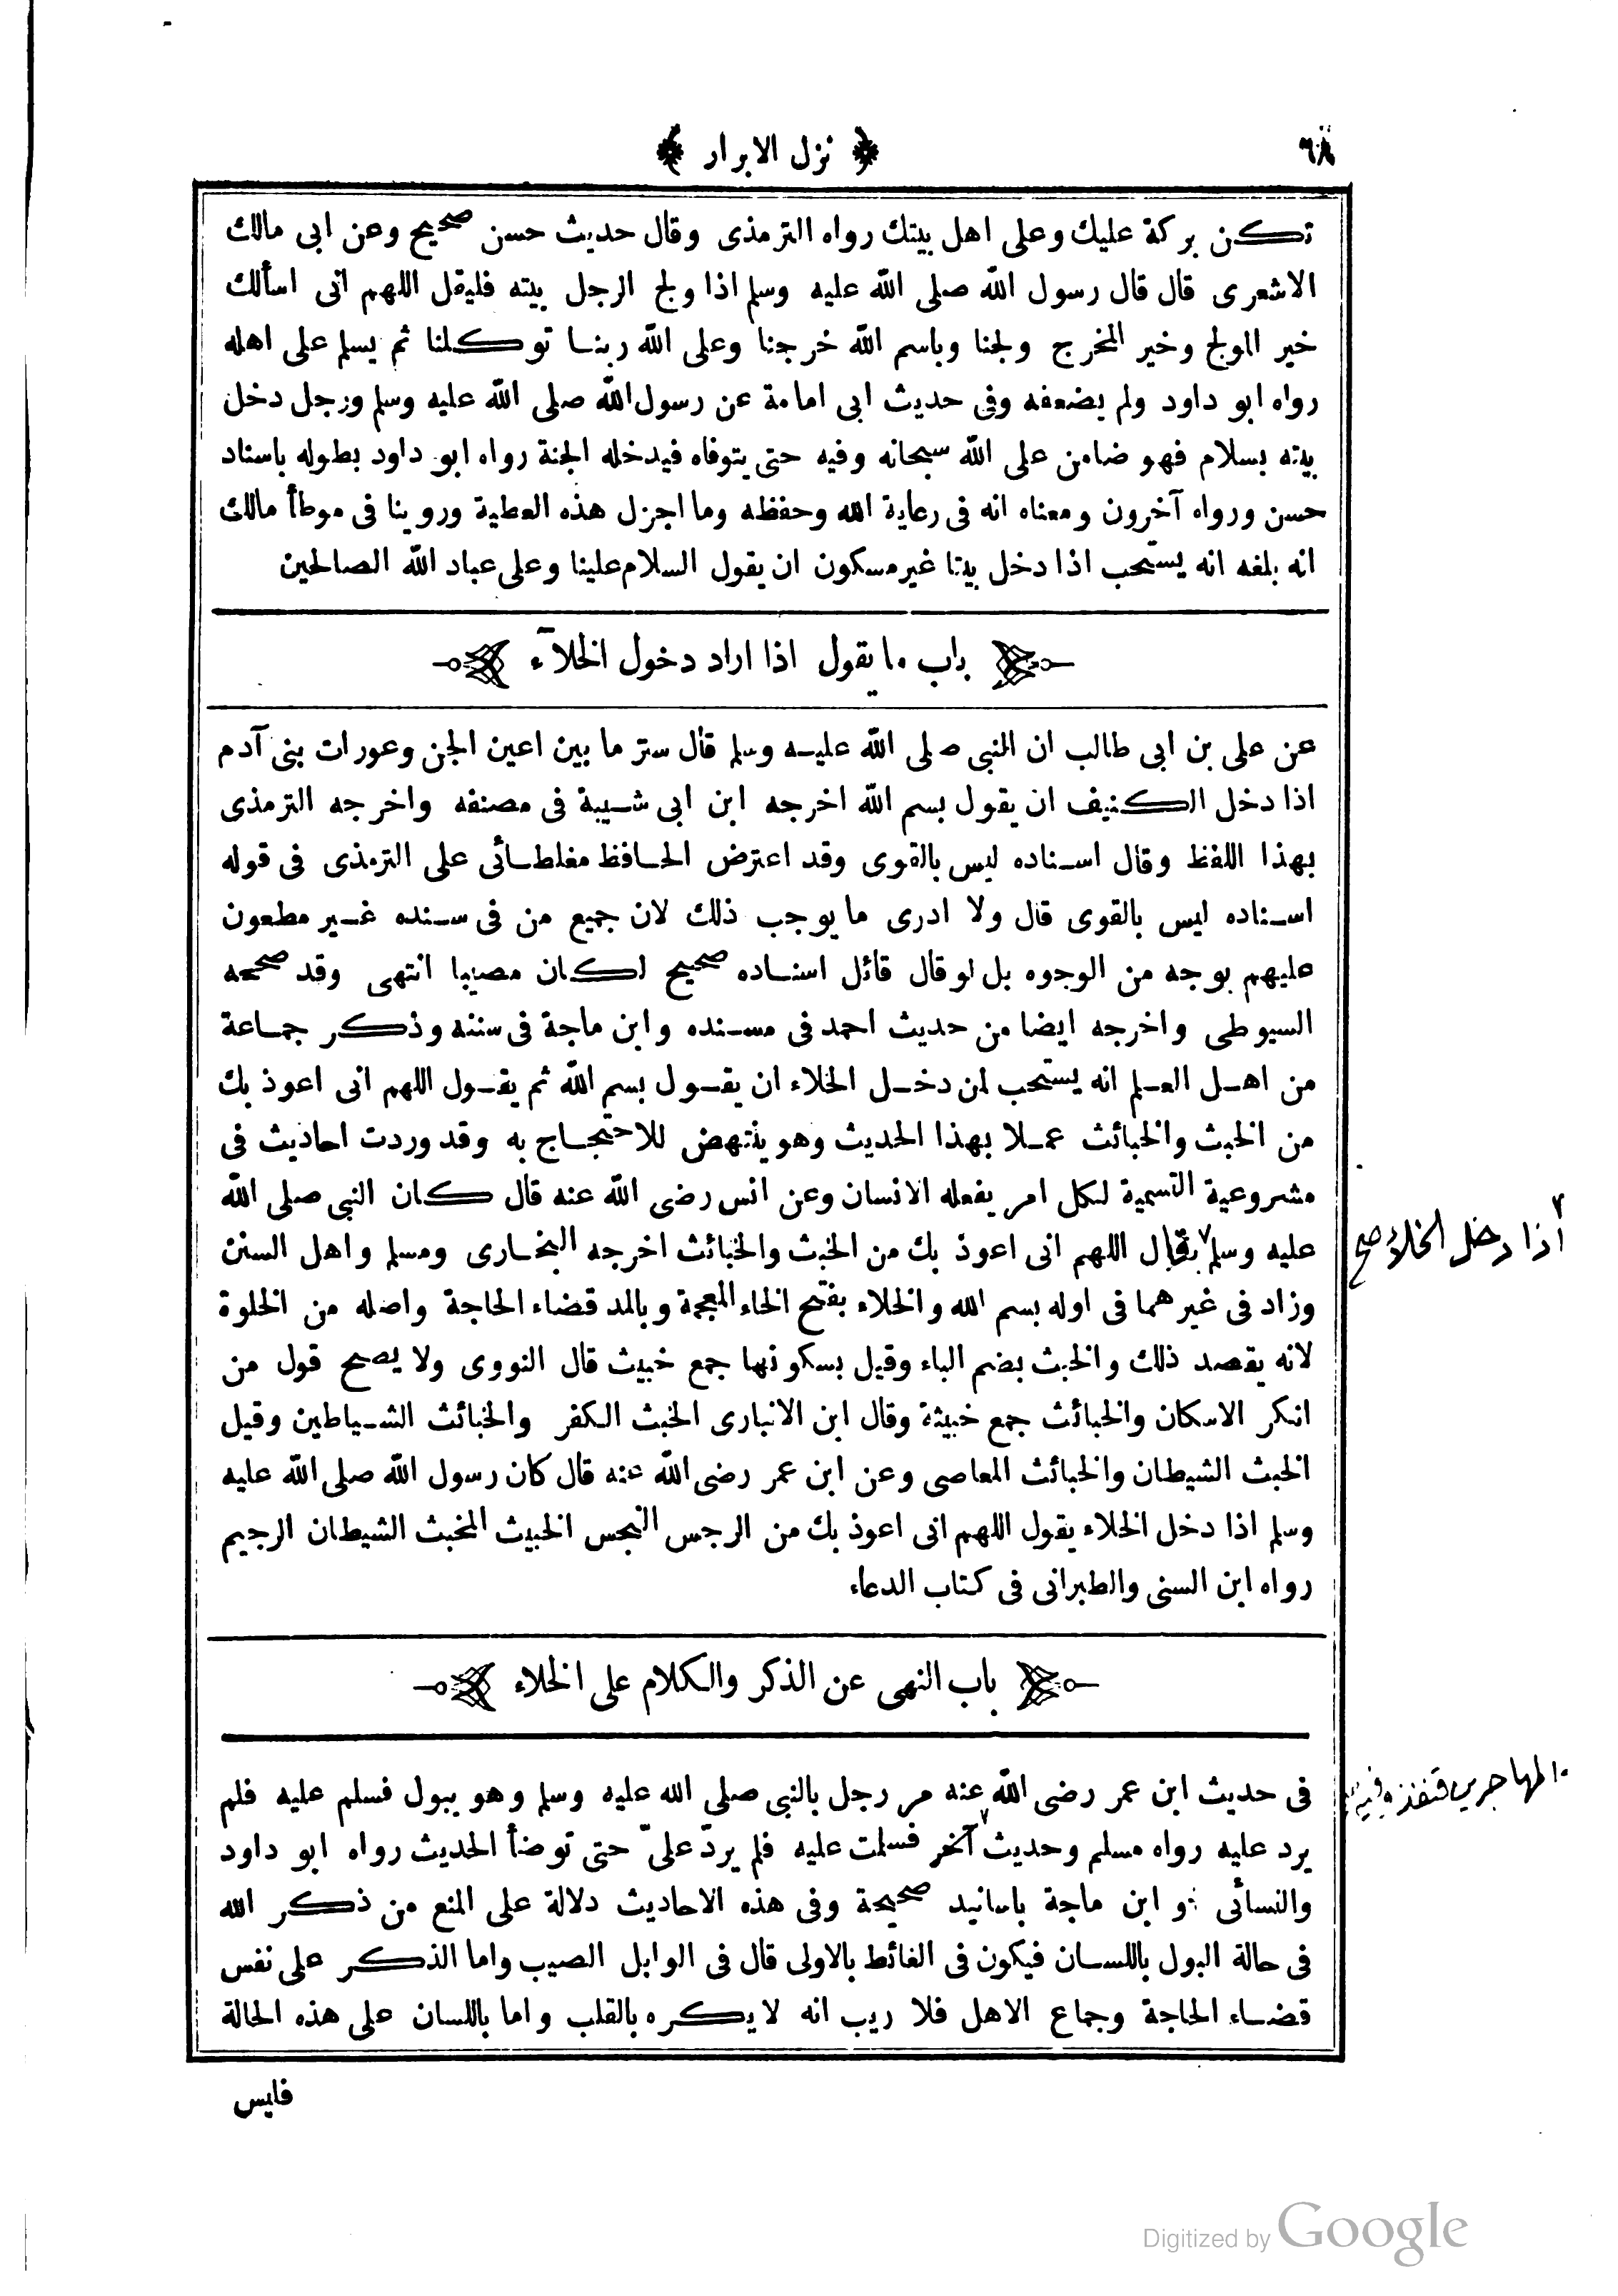 ﴿ نزل الابرار ﴾
تكن بركة عليك وعلى اهل بيتك رواه الترمذى وقال حديث حسن صحيح وعن ابى مالك
الاشعرى قال قال رسول الله صلى الله عليه وسلم اذا ولج الرجل بيته فليقل اللهم انى اسألك
خير المولج وخير المخرج ولجنا وباسم الله خرجنا وعلى الله ربنا توكلنا ثم يسلم على اهله
رواه ابو داود ولم يضعفه وفى حديث ابى امامة عن رسول الله صلى الله عليه وسلم ورجل دخل
بيته بسلام فهو ضامن على الله سبحانه وفيه حتى يتوفاه فيدخله الجنة رواه ابو داود بطوله باسناد
حسن ورواه آخرون ومعناه انه فى رعاية الله وحفظه وما اجزل هذه العطية وروينا فى موطأ مالك
انه بلغه انه يستحب اذا دخل بيتا غير مسكون ان يقول السلام علينا وعلى عباد الله الصالحين
باب ما يقول اذا اراد دخول الخلآء
عن على بن ابى طالب ان النبى صلى الله عليه وسلم قال ستر ما بين اعين الجن وعورات بنى آدم
اذا دخل الكنيف ان يقول بسم الله اخرجه ابن ابى شيبة فى مصنفه واخرجه الترمذى
بهذا اللفظ وقال اسناده ليس بالقوى وقد اعترض الحافظ مغلطائى على الترمذى فى قوله
اسناده ليس بالقوى قال ولا ادرى ما يوجب ذلك لان جميع من فى سنده غير مطعون
عليهم بوجه من الوجوه بل لو قال قائل اسناده صحيح لكان مصيبا انتهى وقد صححه
السيوطى واخرجه ايضا من حديث احمد فى مسنده وابن ماجة فى سننه وذكر جماعة
من اهل العلم انه يستحب لمن دخل الخلاء ان يقول بسم الله ثم يقول اللهم انى اعوذ بك
من الخبث والخبائث عملا بهذا الحديث وهو ينتهض للاحتجاج به وقد وردت احاديث فى
مشروعية التسمية لكل امر يفعله الانسان وعن انس رضى الله عنه قال كان النبى صلى الله
عليه وسلم ٧ يقال اللهم انى اعوذ بك من الخبث والخبائث اخرجه البخارى ومسلم واهل السنن
٧ اذا دخل الخلاء صح
وزاد فى غيرهما فى اوله بسم الله والخلاء بفتح الخاء المعجمة وبالمد قضاء الحاجة واصله من الخلوة
لانه يقصد ذلك والخبث بضم الباء وقيل بسكونها جمع خبيث قال النووى ولا يصح قول من
انكر الاسكان والخبائث جمع خبيثة وقال ابن الانبارى الخبث الكفر والخبائث الشياطين وقيل
الخبث الشيطان والخبائث المعاصى وعن ابن عمر رضى الله عنه قال كان رسول الله صلى الله عليه
وسلم اذا دخل الخلاء يقول اللهم انى اعوذ بك من الرجس النجس الخبيث المخبث الشيطان الرجيم
رواه ابن السنى والطبرانى فى كتاب الدعاء
باب النهى عن الذكر والكلام على الخلاء
فى حديث ابن عمر رضى الله عنه مر رجل بالنبى صلى الله عليه وسلم وهو يبول فسلم عليه فلم
يرد عليه رواه مسلم وحديث ٧ آخر فسلمت عليه فلم يردّ علىّ حتى توضأ الحديث رواه ابو داود
والنسائى و ابن ماجة باسانيد صحيحة وفى هذه الاحاديث دلالة على المنع من ذكر الله
فى حالة البول باللسان فيكون فى الغائط بالاولى قال فى الوابل الصيب واما الذكر على نفس
قضاء الحاجة وجماع الاهل فلا ريب انه لا يكره بالقلب واما باللسان على هذه الحالة
المهاجر بن قنفذ
فليس
Digitized by Google